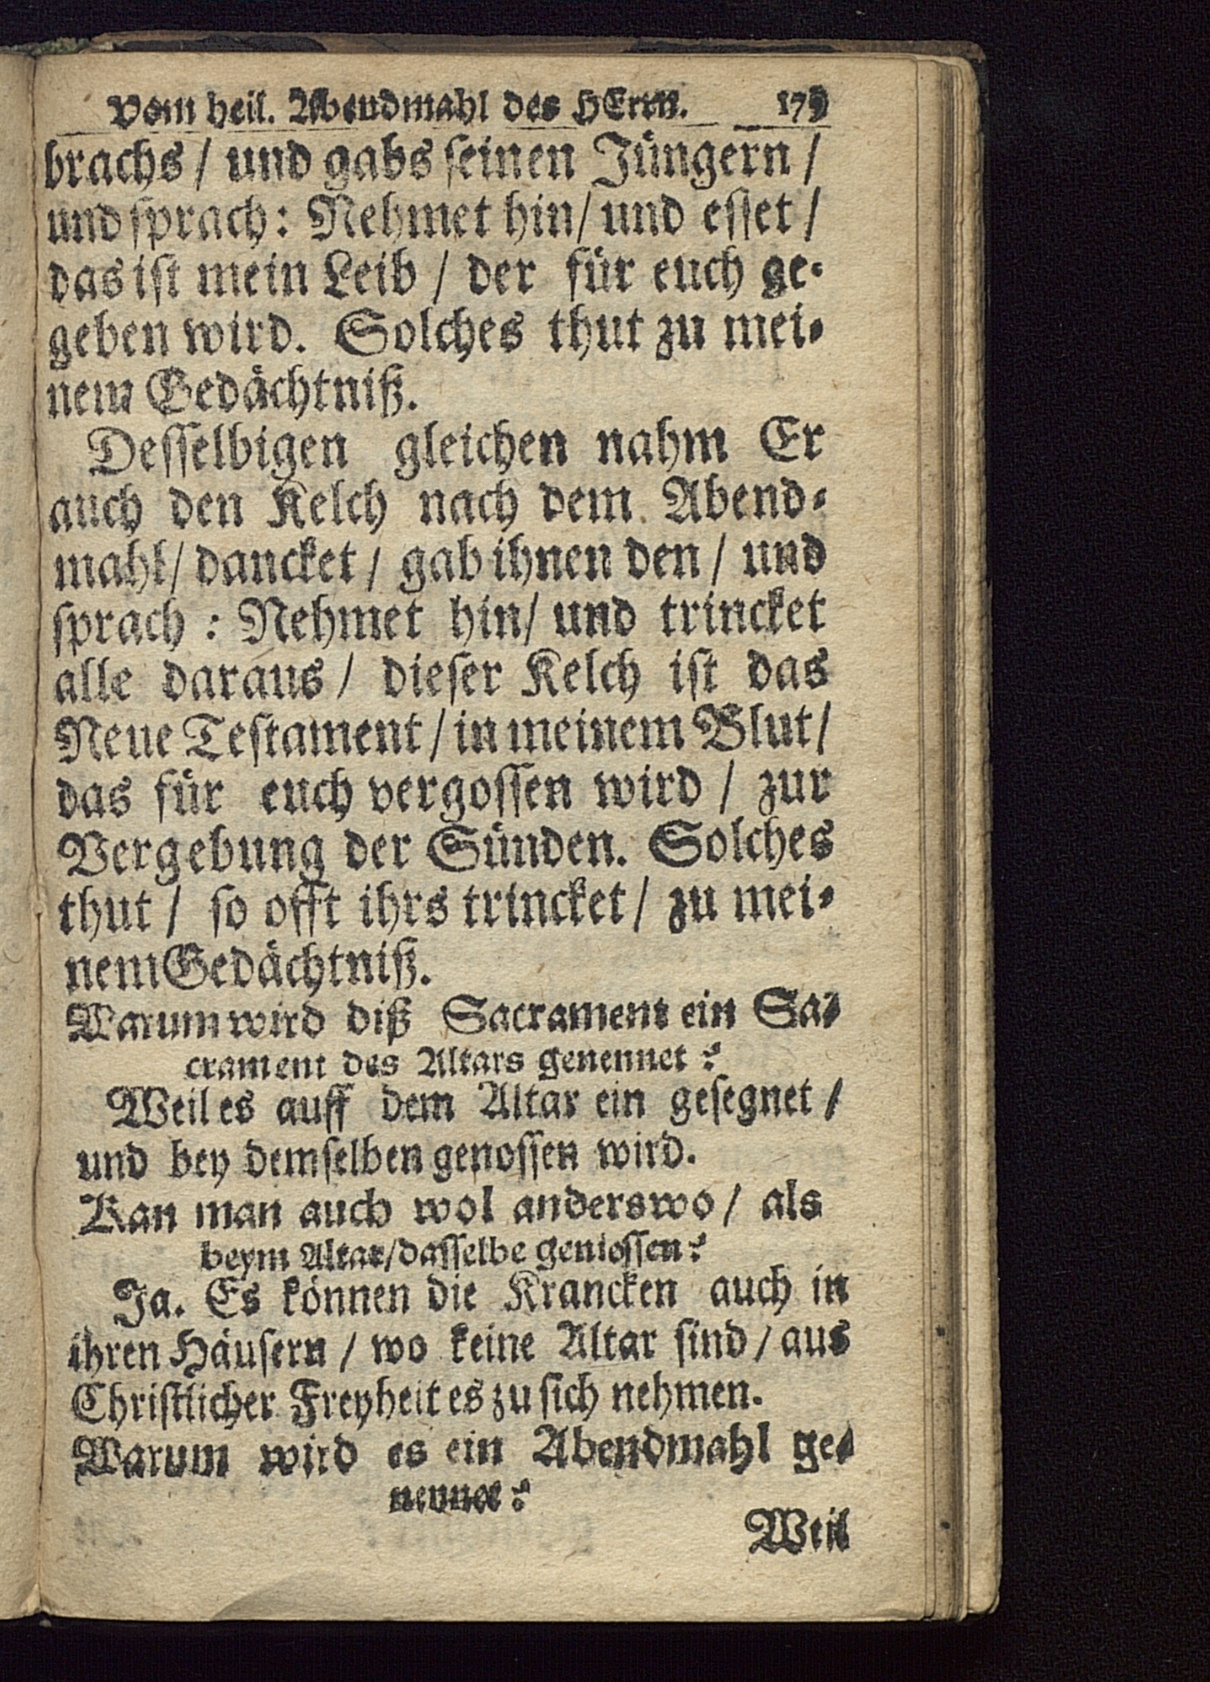 Vom heil. Abendmahl des HErrn. 179
brachs / und gabs seinen Jüngern /
und sprach: Nehmet hin / und esset /
das ist mein Leib / der für euch ge-
geben wird. Solches thut zu mei-
nem Gedächtniß.
Desselbigen gleichen nahm Er
auch den Kelch nach dem Abend-
mahl / dancket / gab ihnen den / und
sprach : Nehmet hin / und trincket
alle daraus / dieser Kelch ist das
Neue Testament / in meinem Blut /
das für euch vergossen wird / zur
Vergebung der Sünden. Solches
thut / so offt ihrs trincket / zu mei-
nem Gedächtniß.
Warum wird diß Sacrament ein Sa-
crament des Altars genennet?
Weil es auff dem Altar ein gesegnet /
und bey demselben genossen wird.
Kan man auch wol anderswo / als
beym Altar / dasselbe geniossen?
Ja. Es können die Krancken auch in
ihren Häusern / wo keine Altar sind / aus
Christlicher Freyheit es zu sich nehmen.
Warum wird es ein Abendmahl ge-
nennet?
Weil